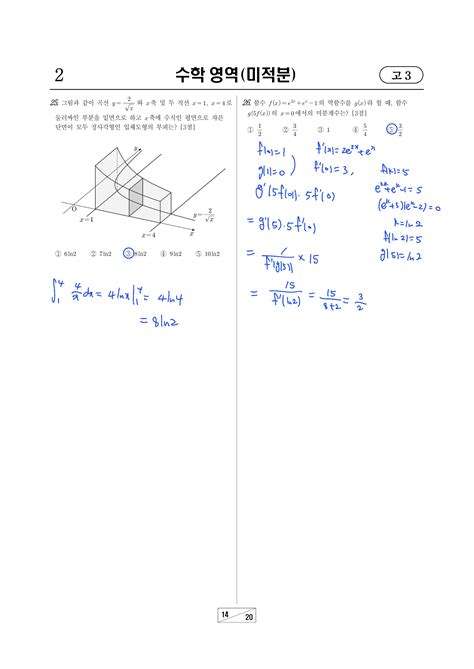 2
수학 영역(미적분)
고 3
25. 그림과 같이 곡선 y = 2/√x 와 x축 및 두 직선 x=1, x=4로
둘러싸인 부분을 밑면으로 하고 x축에 수직인 평면으로 자른
단면이 모두 정사각형인 입체도형의 부피는? [3점]
x
O
x=1
x=4
x
y = 2/√x
① 6ln2 ② 7ln2 ③ 8ln2 ④ 9ln2 ⑤ 10ln2
∫₁⁴ 4/x dx = 4lnx|₁⁴ = 4ln4
= 8ln2
26. 함수 f(x)=e²ˣ+eˣ-1의 역함수를 g(x)라 할 때, 함수
g(5f(x))의 x=0에서의 미분계수는? [3점]
① 1/2 ② 3/4 ③ 1 ④ 5/4 ⑤ 3/2
f(0)=1 f'(x)=2e²ˣ+eˣ
g(1)=0 f'(0)=3,
g'(5f(0))·5f'(0)
= g'(5)·5f'(0)
= 1/f'(g(5)) × 15
= 15/f'(ln2) = 15/(8+2) = 3/2
f(k)=5
e²ᵏ+eᵏ-1=5
(eᵏ+3)(eᵏ-2)=0
k=ln2
f(ln2)=5
g(5)=ln2
14
20